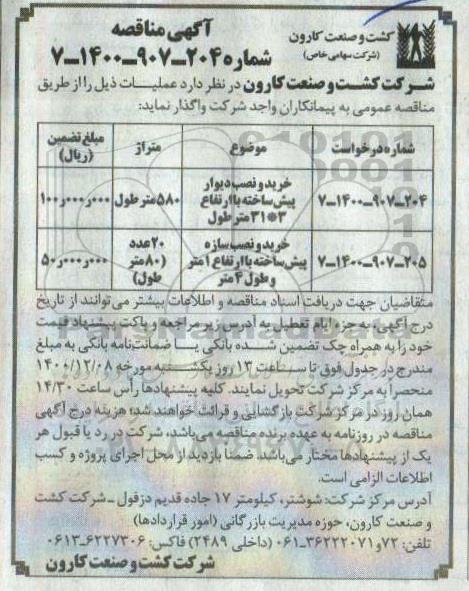 کشت و صنعت کارون
(شرکت سهامی خاص)
آگهی مناقصه
شماره ۲۰۴-۹۰۷-۱۴۰۰-۷
شرکت کشت و صنعت کارون در نظر دارد عملیات ذیل را از طریق
مناقصه عمومی به پیمانکاران واجد شرکت واگذار نماید:
شماره درخواست موضوع متراژ مبلغ تضمین (ریال)
۷-۱۴۰۰-۹۰۷-۲۰۴ خرید و نصب دیوار پیش ساخته با ارتفاع ۳*۳۱ متر طول ۵۸۰ متر طول ۱۰۰,۰۰۰,۰۰۰
۷-۱۴۰۰-۹۰۷-۲۰۵ خرید و نصب سازه پیش ساخته با ارتفاع ۱ متر و طول ۴ متر ۲۰ عدد (۸۰ متر طول) ۵۰,۰۰۰,۰۰۰
متقاضیان جهت دریافت اسناد مناقصه و اطلاعات بیشتر می‌توانند از تاریخ
درج آگهی، به جزء ایام تعطیل به آدرس زیر مراجعه و پاکت پیشنهاد قیمت
خود را به همراه چک تضمین شده بانکی یا ضمانت‌نامه بانکی به مبلغ
مندرج در جدول فوق تا ساعت ۱۳ روز یکشنبه مورخه ۱۴۰۰/۱۲/۰۸
منحصرا به مرکز شرکت تحویل نمایند. کلیه پیشنهادها رأس ساعت ۱۴/۳۰
همان روز در مرکز شرکت بازگشایی و قرائت خواهند شد؛ هزینه درج آگهی
مناقصه در روزنامه به عهده برنده مناقصه می‌باشد، شرکت در رد یا قبول هر
یک از پیشنهادها مختار می‌باشد. ضمنا بازدید از محل اجرای پروژه و کسب
اطلاعات الزامی است.
آدرس مرکز شرکت: شوشتر، کیلومتر ۱۷ جاده قدیم دزفول - شرکت کشت
و صنعت کارون، حوزه مدیریت بازرگانی (امور قراردادها)
تلفن: ۷۲ و ۳۶۲۲۲۰۷۱-۰۶۱ (داخلی ۲۴۸۹) فاکس: ۶۲۲۷۳۰۶-۰۶۱۳
شرکت کشت و صنعت کارون